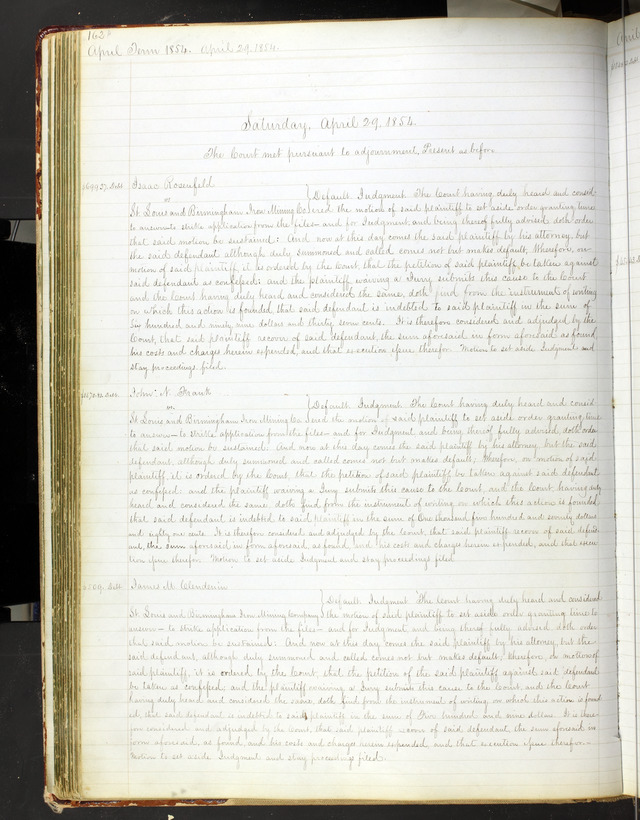 162
April Term 1854. April 29, 1854.
Saturday, April 29, 1854.
The Court met pursuant to adjournment, Present as before
$699.37. Debt Isaac Rosenfeld
vs } Default Judgment The Court having duly heard and consid-
St Louis and Birmingham Iron Mining Co ered the motion of said plaintiff to set aside order granting time
to answer to strike application from the files and for Judgment, and being thereof fully advised doth order
that said motion be sustained: And now at this day comes the said plaintiff by his attorney, but
the said defendant although duly summoned and called comes not but makes default, Wherefore, on
motion of said plaintiff, it is ordered by the Court, that the petition of said plaintiff, be taken against
said defendant as confessed; and the plaintiff waiving a Jury submits this cause to the Court
and the Court having duly heard and considered the same, doth find from the instrument of writing
on which this action is founded, that said defendant is indebted to said plaintiff in the sum of
Six hundred and ninety nine dollars and thirty seven cents. It is therefore considered and adjudged by the
Court, that said plaintiff recover of said defendant, the sum aforesaid in form aforesaid as found,
his costs and charges herein expended, and that execution issue therefor. Motion to set aside Judgment and
stay proceedings filed.
Debt John N. Frank
vs } Default Judgment The Court having duly heard and consid-
St Louis and Birmingham Iron Mining Co ered the motion of said plaintiff to set aside order granting time
to answer to strike application from the files and for Judgment and being thereof fully advised, doth order
that said motion be sustained: And now at this day comes the said plaintiff by his attorney, but the said
defendant, although duly summoned and called comes not but makes default, Wherefore, on motion of said
plaintiff, it is ordered by the Court, that the petition of said plaintiff be taken against said defendant
as confessed: and the plaintiff waiving a Jury submits this cause to the Court, and the Court, having duly
heard and considered the same, doth find from the instrument of writing on which this action is founded,
that said defendant is indebted to said plaintiff in the sum of One thousand five hundred and seventy dollars
and eighty one cents. It is therefore considered and adjudged by the Court, that said plaintiff recover of said defend-
ant, the sum aforesaid in form aforesaid, as found and his costs and charges herein expended, and that execu-
tion issue therefor. Motion to set aside Judgment and stay proceedings filed
$509. Debt James M. Clendenin
} Default Judgment The Court having duly heard and considered
St. Louis and Birmingham Iron Mining Company the motion of said plaintiff to set aside order granting time to
answer to strike application from the files and for Judgment, and being thereof fully advised, doth order
that said motion be sustained: And now at this day comes the said plaintiff by his attorney, but the
said defendant, although duly summoned and called comes not but makes default, Wherefore, on motion of
said plaintiff, it is ordered by the Court, that the petition of the said plaintiff against said defendant
be taken as confessed; and the plaintiff waiving a Jury submits this cause to the Court, and the Court
having duly heard and considered the same, doth find from the instrument of writing on which this action is found-
ed, that said defendant is indebted to said plaintiff in the sum of Five hundred and nine dollars. It is there-
fore considered and adjudged by the Court, that said plaintiff recover of said defendant, the sum aforesaid in
form aforesaid, as found, and his costs and charges herein expended and that execution issue therefor.
Motion to set aside Judgment and stay proceedings filed.